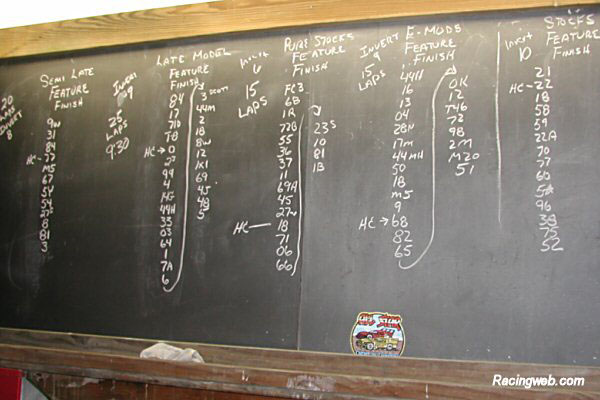 20
LAPS
8
SEMI LATE
FEATURE
FINISH
9W
31
84
HC→ 77
M5
67
54
8
81
3
INVERT
9
25
LAPS
9:30
LATE MODEL
FEATURE
FINISH
84
17
71D
T8
HC→ 0
27
99
4
14G
44H
33
03
64
1
7A
6
3 SCOTT
44M
2
18
8W
12
1K1
69
45
48
5
INVERT
6
15
LAPS
PURE STOCKS
FEATURE
FINISH
FC3
6B
1R
72B
55
36
37
11
69A
45
27W
HC— 18
71
06
66
23S
10
81
1B
INVERT
15
9
LAPS
E-MODS
FEATURE
FINISH
44H
16
13
04
28N
17M
44MH
50
18
M5
9
HC→ 68
82
65
OK
12
T46
72
98
2M
M20
51
INVERT
10
STOCKS
FEATURE
FINISH
21
HC— 22
18
58
59
22A
70
77
60
5A
96
38
75
52
Racingweb.com